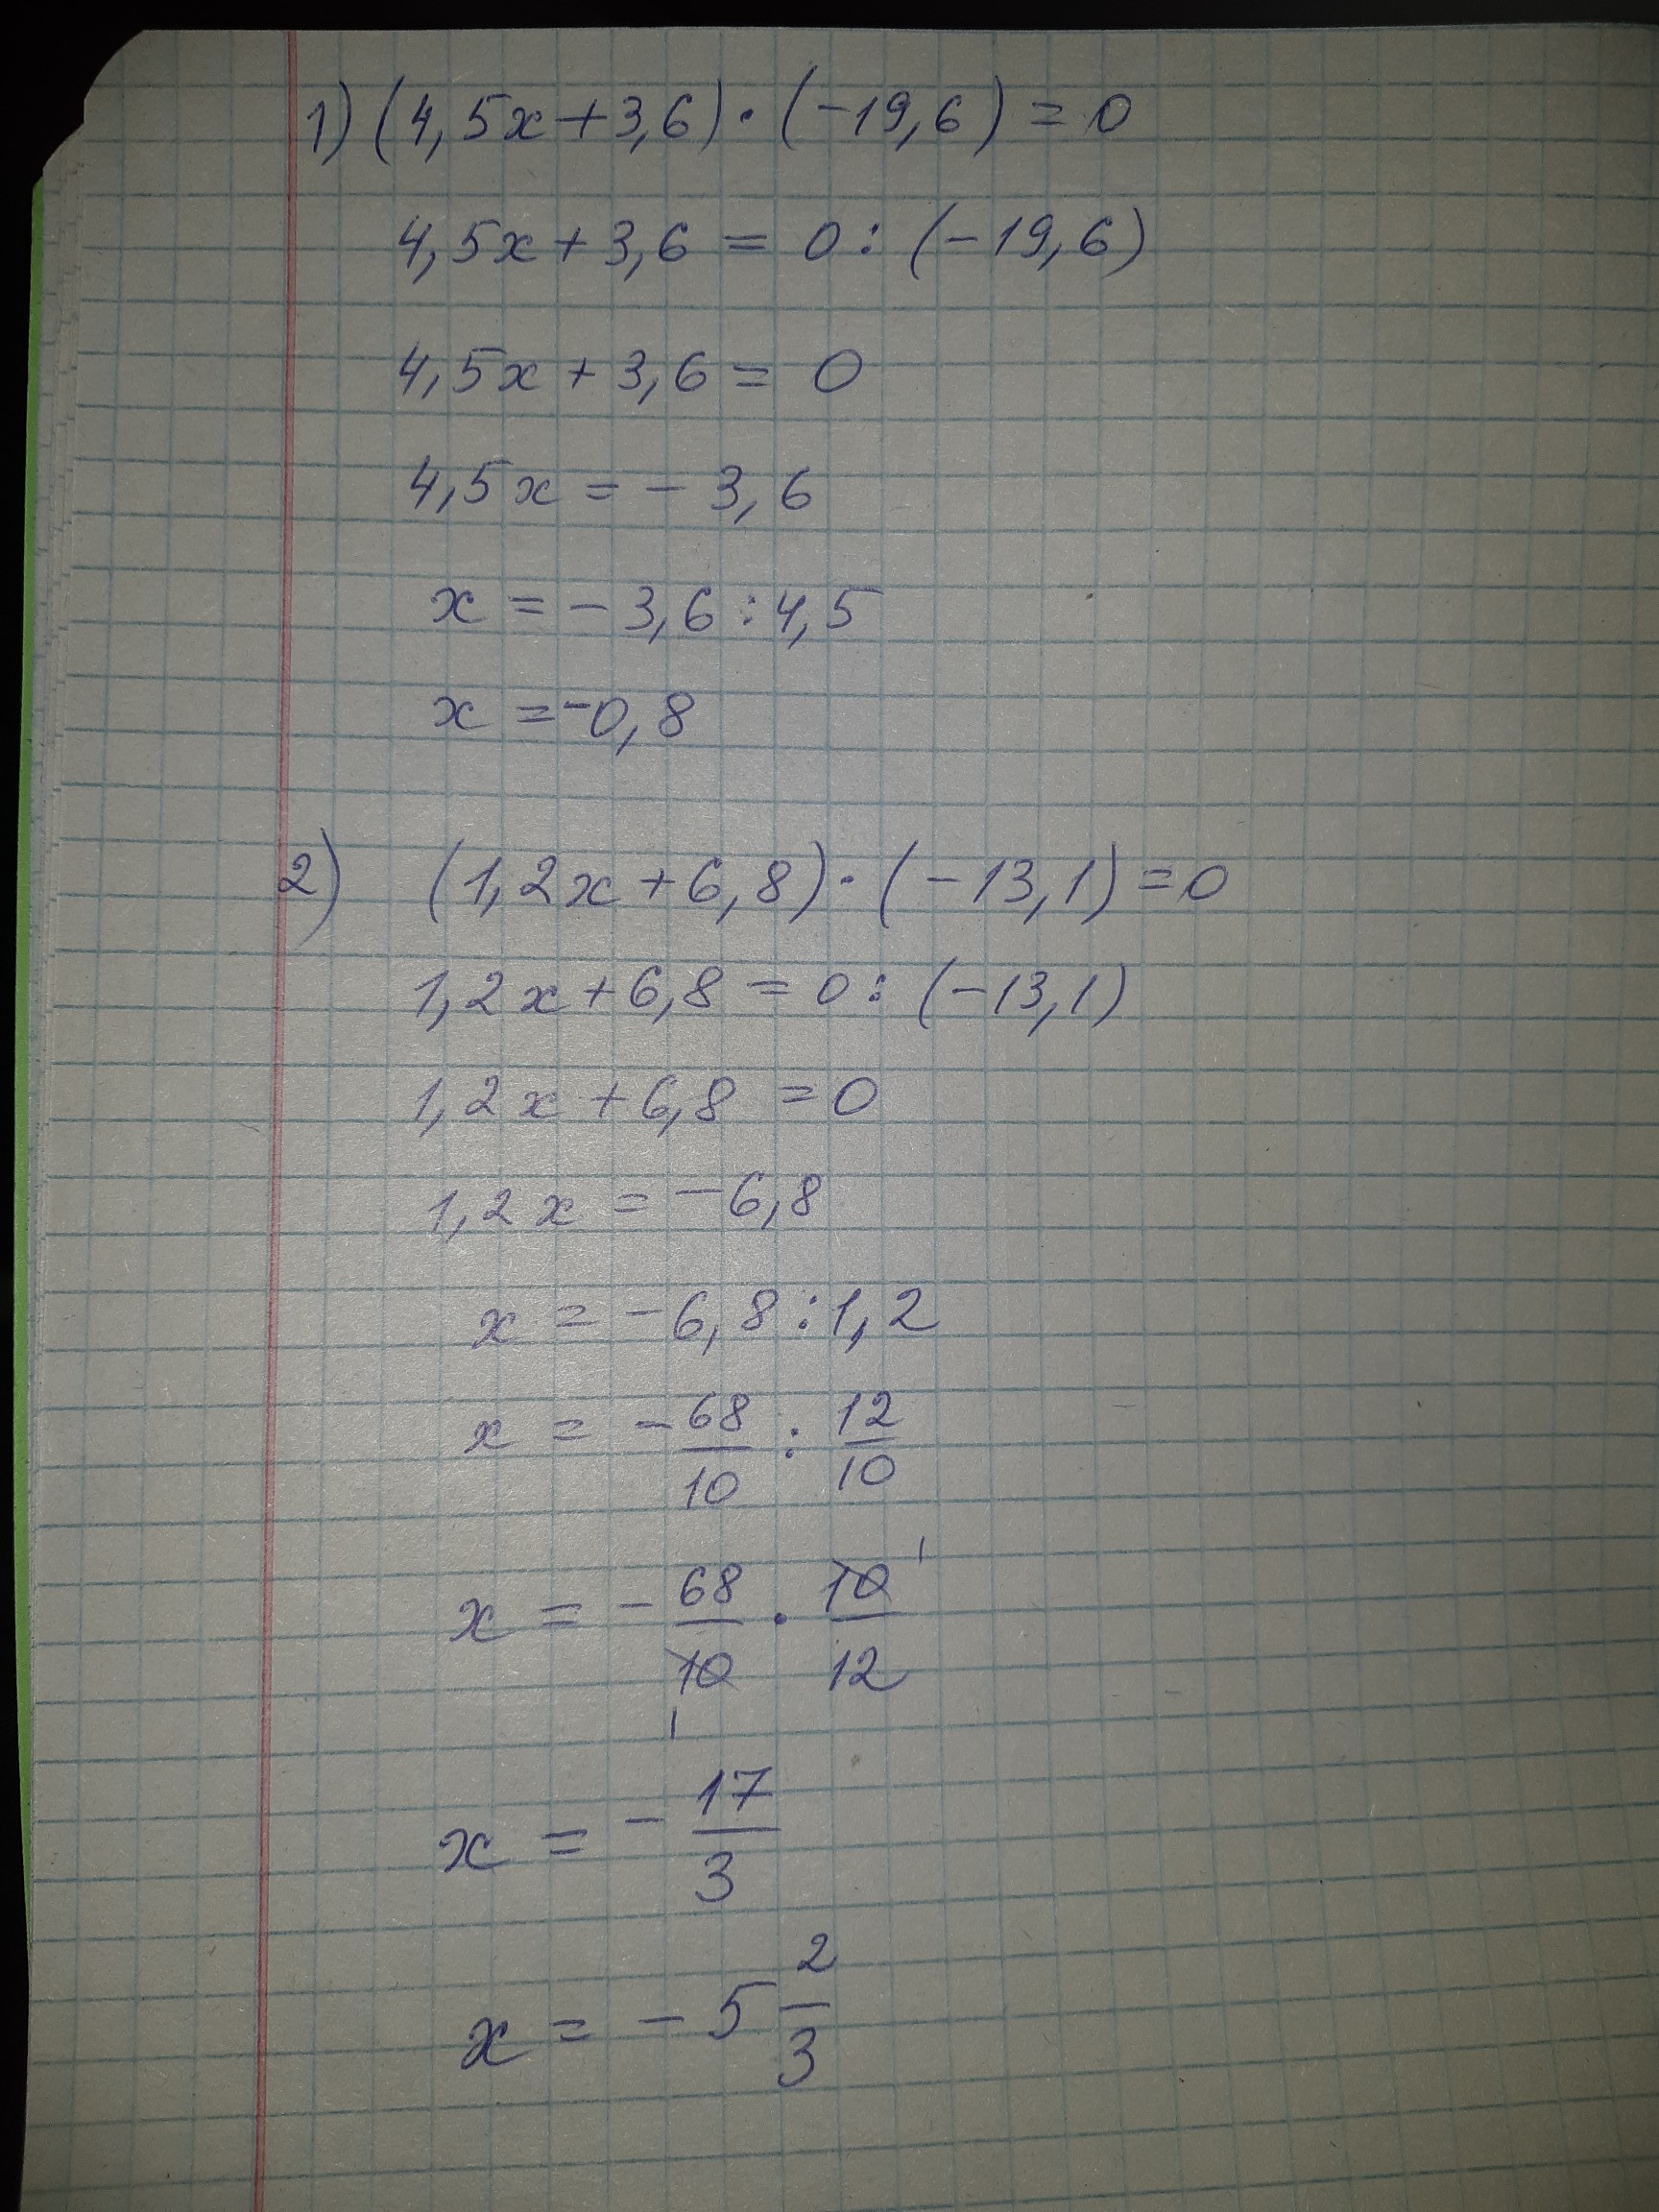 1) (4,5x+3,6)·(-19,6)=0
4,5x+3,6 = 0:(-19,6)
4,5x+3,6= 0
4,5x=-3,6
x=-3,6:4,5
x=-0,8
2) (1,2x+6,8)·(-13,1)=0
1,2x+6,8=0:(-13,1)
1,2x+6,8=0
1,2x=-6,8
x=-6,8:1,2
x = -68/10 : 12/10
1
x = -68/10 · 10/12
1
x = -17/3
x = -5 2/3